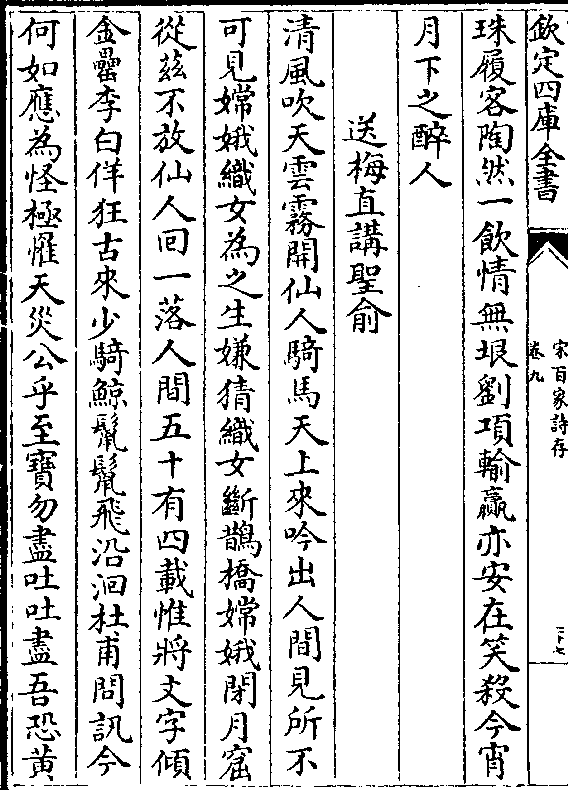 欽定四庫全書
宋百家詩存
卷九
三十七
珠履客陶然一飲情無垠劉項輸贏亦安在笑殺今宵
月下之醉人
送梅直講聖俞
清風吹天雲霧開仙人騎馬天上來吟出人間見所不
可見嫦娥織女為之生嫌猜織女斷鵲橋嫦娥閉月窟
從茲不放仙人回一落人間五十有四載惟將文字傾
金罍李白佯狂古來少騎鯨鬣鬣飛沿洄杜甫問訊今
何如應為怪極罹天災公乎至寶勿盡吐吐盡吾恐黄